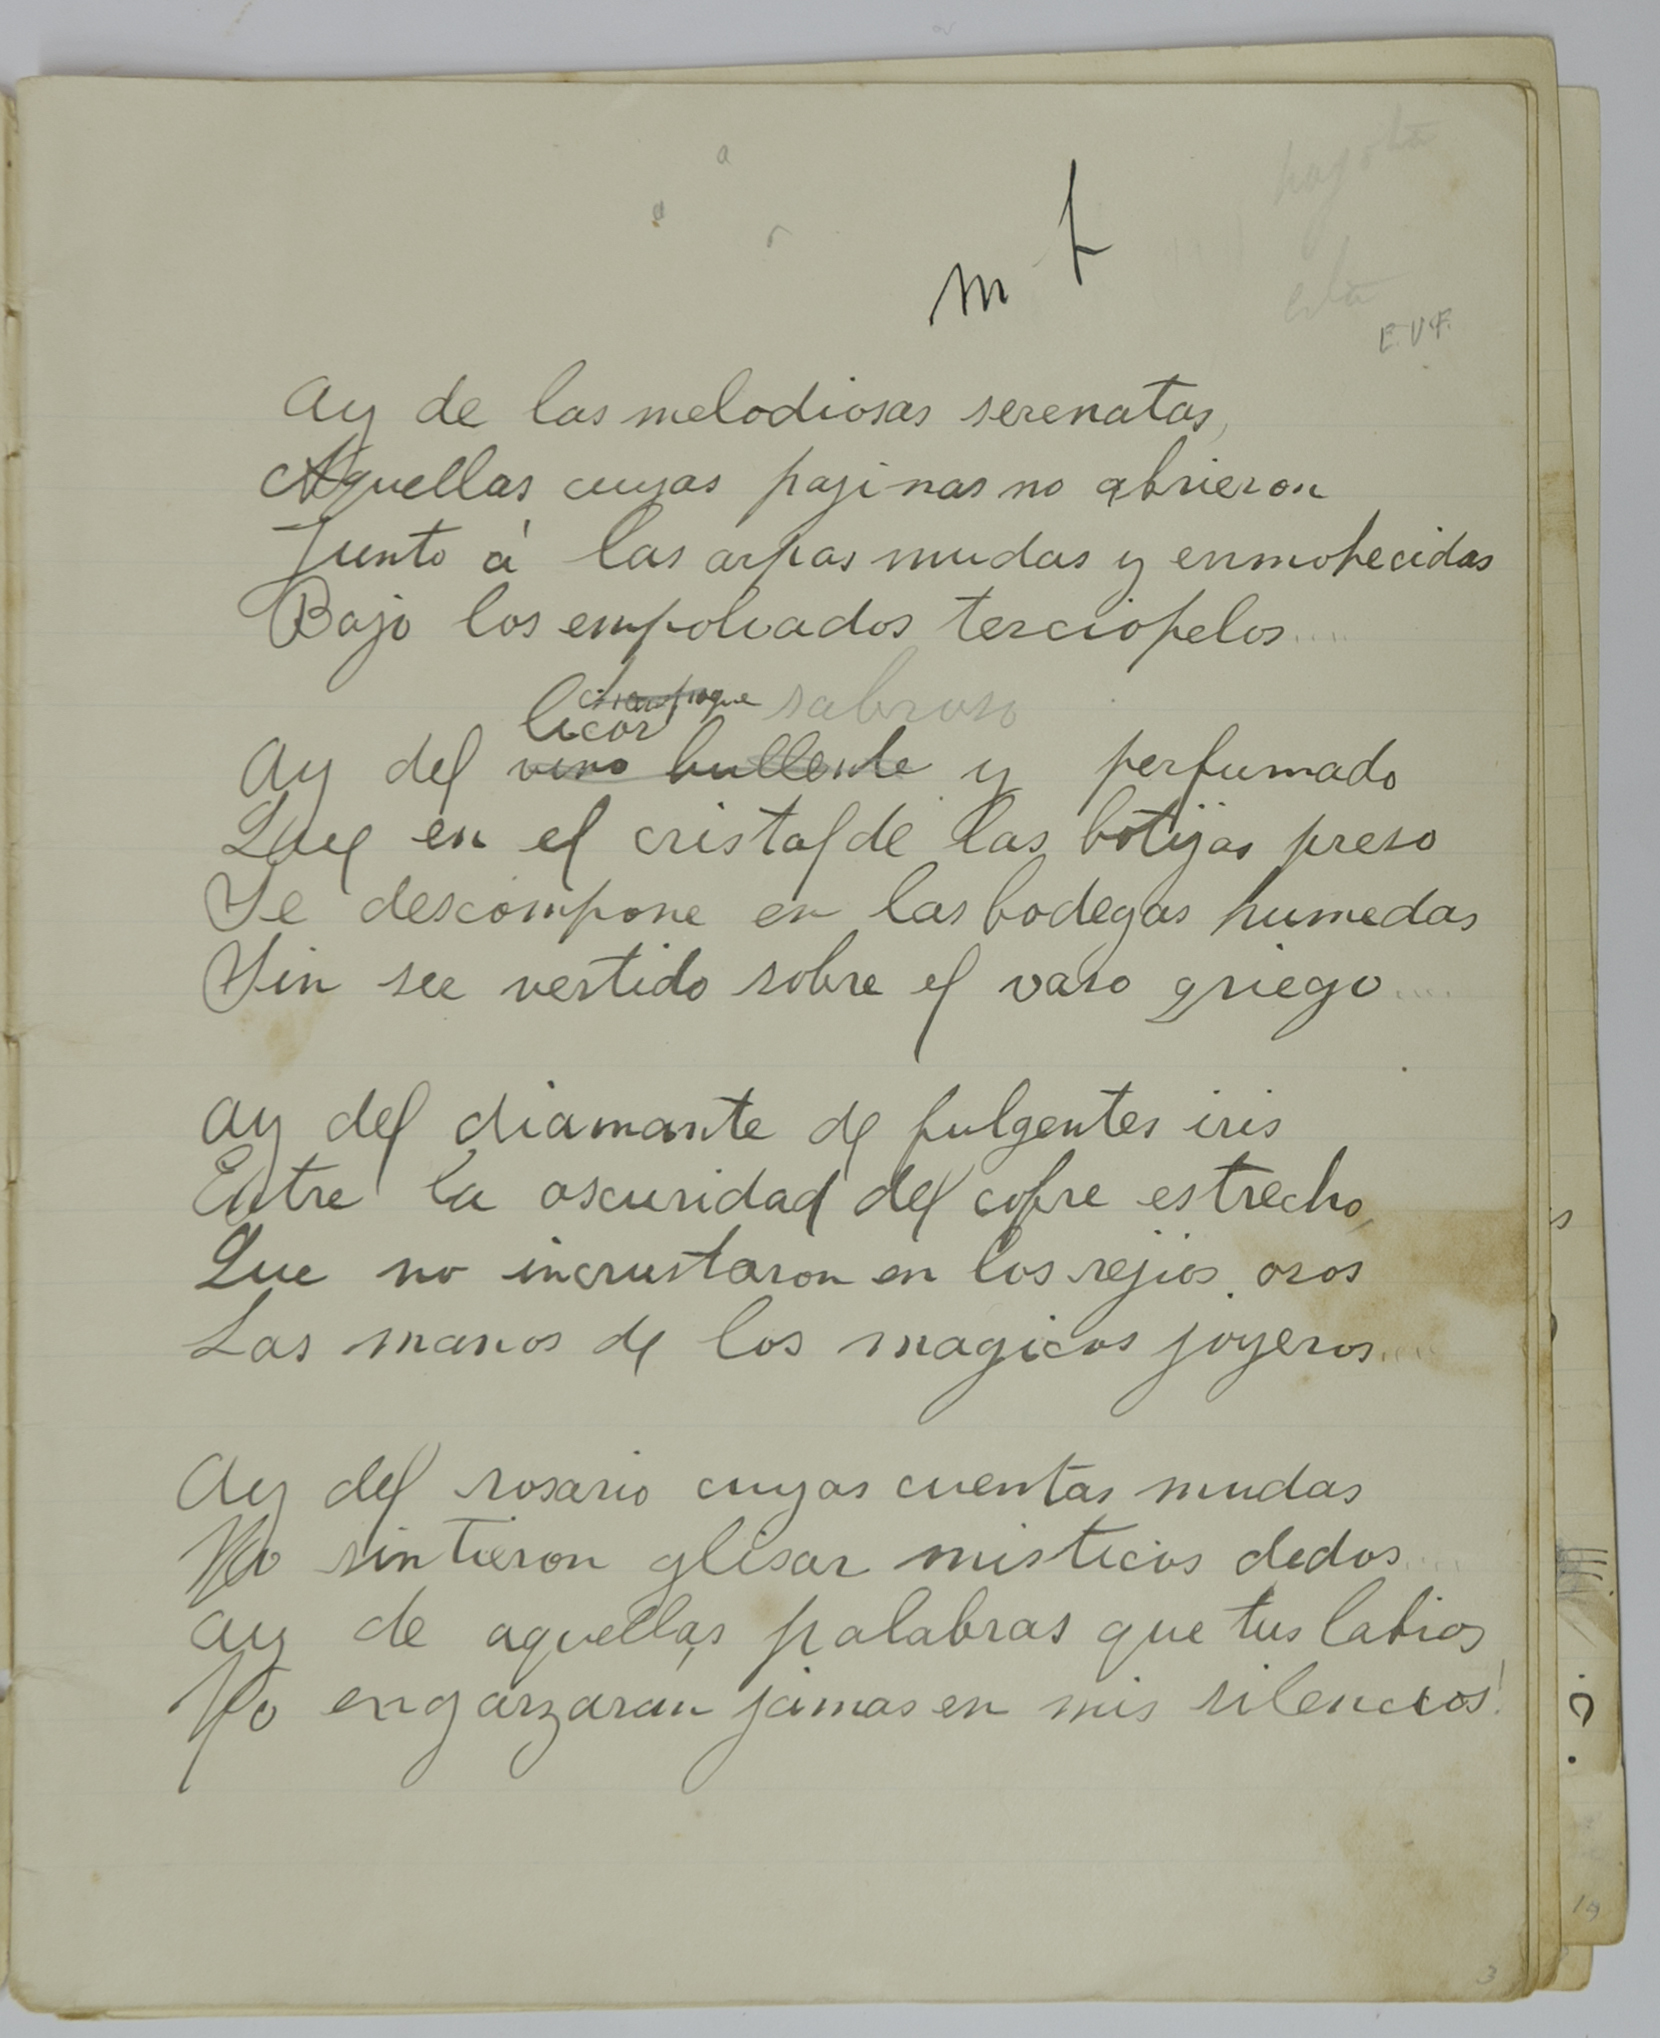 m t
E.V.F.
Ay de las melodiosas serenatas,
Aquellas cuyas pajinas no abrieron
Junto á las arpas mudas y enmohecidas
Bajo los empolvados terciopelos....
champagne sabroso
licor
Ay del vino bullente y perfumado
Que en el cristal de las botijas preso
Se descompone en las bodegas humedas
Sin ser vertido sobre el vaso griego....
Ay del diamante de fulgentes iris
Entre la oscuridad del cofre estrecho,
Que no incrustaron en los rejios oros
Las manos de los magicos joyeros....
Ay del rosario cuyas cuentas mudas
No sintieron glisar misticos dedos....
Ay de aquellas palabras que tus labios
No engarzaran jamas en mis silencios!
3